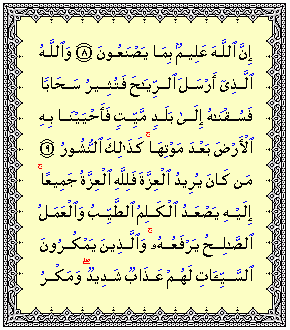 إِنَّ ٱللَّهَ عَلِيمٌۢ بِمَا يَصْنَعُونَ ۝٨ وَٱللَّهُ
ٱلَّذِىٓ أَرْسَلَ ٱلرِّيَـٰحَ فَتُثِيرُ سَحَابًا
فَسُقْنَـٰهُ إِلَىٰ بَلَدٍ مَّيِّتٍ فَأَحْيَيْنَا بِهِ
ٱلْأَرْضَ بَعْدَ مَوْتِهَا ۚ كَذَٰلِكَ ٱلنُّشُورُ ۝٩
مَن كَانَ يُرِيدُ ٱلْعِزَّةَ فَلِلَّهِ ٱلْعِزَّةُ جَمِيعًا ۚ
إِلَيْهِ يَصْعَدُ ٱلْكَلِمُ ٱلطَّيِّبُ وَٱلْعَمَلُ
ٱلصَّـٰلِحُ يَرْفَعُهُۥ ۚ وَٱلَّذِينَ يَمْكُرُونَ
ٱلسَّيِّـَٔاتِ لَهُمْ عَذَابٌ شَدِيدٌ ۖ وَمَكْرُ